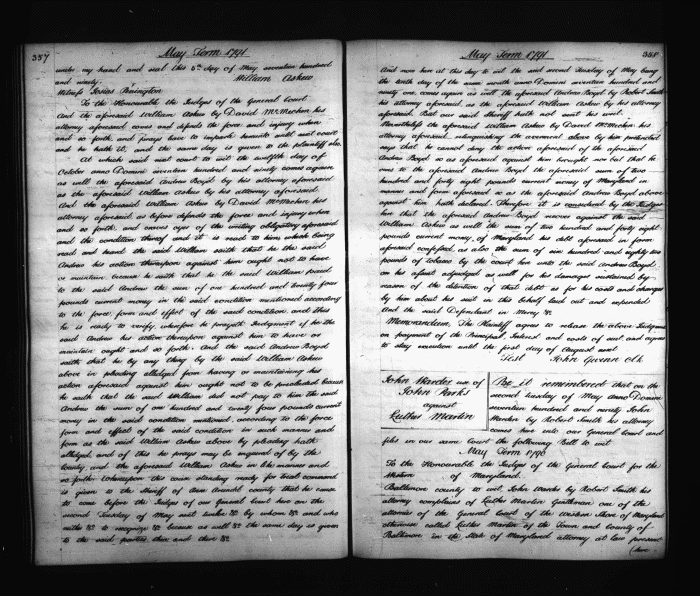 357
May Term 1791
under my hand and seal this 5th day of May seventeen hundred
and ninety. William Askew
Witness Josias Penington
To the Honourable the Judges of the General Court
And the aforesaid William Askew by David McMechen his
attorney aforesaid comes and defends the force and injury when
and so forth and prays leave to imparle hereunto until next court
and he hath it, and the same day is given to the plaintiff also
At which said next court to wit the twelfth day of
October anno Domini seventeen hundred and ninety comes again
as well the aforesaid Andrew Boyd by his attorney aforesaid
as the aforesaid William Askew by his attorney aforesaid
And the aforesaid William Askew by David McMechen his
attorney aforesaid as before defends the force and injury when
and so forth, and craves oyer of the writing obligatory aforesaid
and the condition thereof and it is read to him which being
read and heard the said William saith that he the said
Andrew his action thereupon against him ought not to have
or maintain because he saith that he the said William paid
to the said Andrew the sum of one hundred and twenty four
pounds current money in the said condition mentioned according
to the force form and effect of the said condition and this
he is ready to verify, wherefore he prayeth Judgment if he the
said Andrew his action thereupon against him to have or
maintain ought and so forth. And the said Andrew Boyd
saith that he by any thing by the said William Askew
above in pleading alledged from having or maintaining his
action aforesaid against him ought not to be precluded because
he saith that the said William did not pay to him the said
Andrew the sum of one hundred and twenty four pounds current
money in the said condition mentioned according to the force
form and effect of the said condition in such manner and
form as the said William Askew above by pleading hath
alledged, and of this he prays may be enquired of by the
County, and the aforesaid William Askew in like manner and
so forth. Whereupon this cause standing ready for trial command
is given to the Sheriff of Ann Arundel county that he cause
to come before the Judges of our General Court here on the
second Tuesday of May next twelve &c by whom &c and who
neither &c to recognize &c because as well &c the same day is given
to the said parties then and there &c
May Term 1791
358
And now here at this day to wit the said second Tuesday of May being
the tenth day of the same month anno Domini seventeen hundred and
ninety one comes again as well the aforesaid Andrew Boyd by Robert Smith
his attorney aforesaid as the aforesaid William Askew by his attorney
aforesaid. But our said Sheriff hath not sent his writ.
Nevertheless the aforesaid William Askew by David McMechen his
attorney aforesaid, relinquishing the averment above by him pretended
says that he cannot deny the action aforesaid of the aforesaid
Andrew Boyd so as aforesaid against him brought nor but that he
owes to the aforesaid Andrew Boyd the aforesaid sum of two
hundred and forty eight pounds current money of Maryland in
manner and form aforesaid as the aforesaid Andrew Boyd above
against him hath declared. Therefore it is considered by the Judges
here that the aforesaid Andrew Boyd recover against the said
William Askew as well the sum of two hundred and forty eight
pounds current money of Maryland his debt aforesaid in form
aforesaid confessed, as also the sum of six hundred and eighty two
pounds of tobacco by the court here unto the said Andrew Boyd
on his assent adjudged as well for his damages sustained by
reason of the detention of that debt as for his costs and charges
by him about his suit in this behalf laid out and expended
And the said Defendant in Mercy &c
Memorandum. The Plaintiff agrees to release the above Judgment
on payment of the Principal, Interest and costs of suit and agrees
to stay execution until the first day of August next
Test John Gwinn clk
John Weeks use of
John Parks
against
Luther Martin
Be it remembered that on the
second tuesday of May anno Domini
seventeen hundred and ninety John
Weeks by Robert Smith his attorney
comes here into our General Court and
files in our same Court the following Bill to wit
May Term 1790
To the Honourable the Judges of the General Court for the
Western of Maryland.
Baltimore county to wit John Weeks by Robert Smith his
attorney complains of Luther Martin Gentleman one of the
attornies of the General Court of the Western Shore of Maryland
otherwise called Luther Martin of the Town and County of
Baltimore in the State of Maryland attorney at law present
here